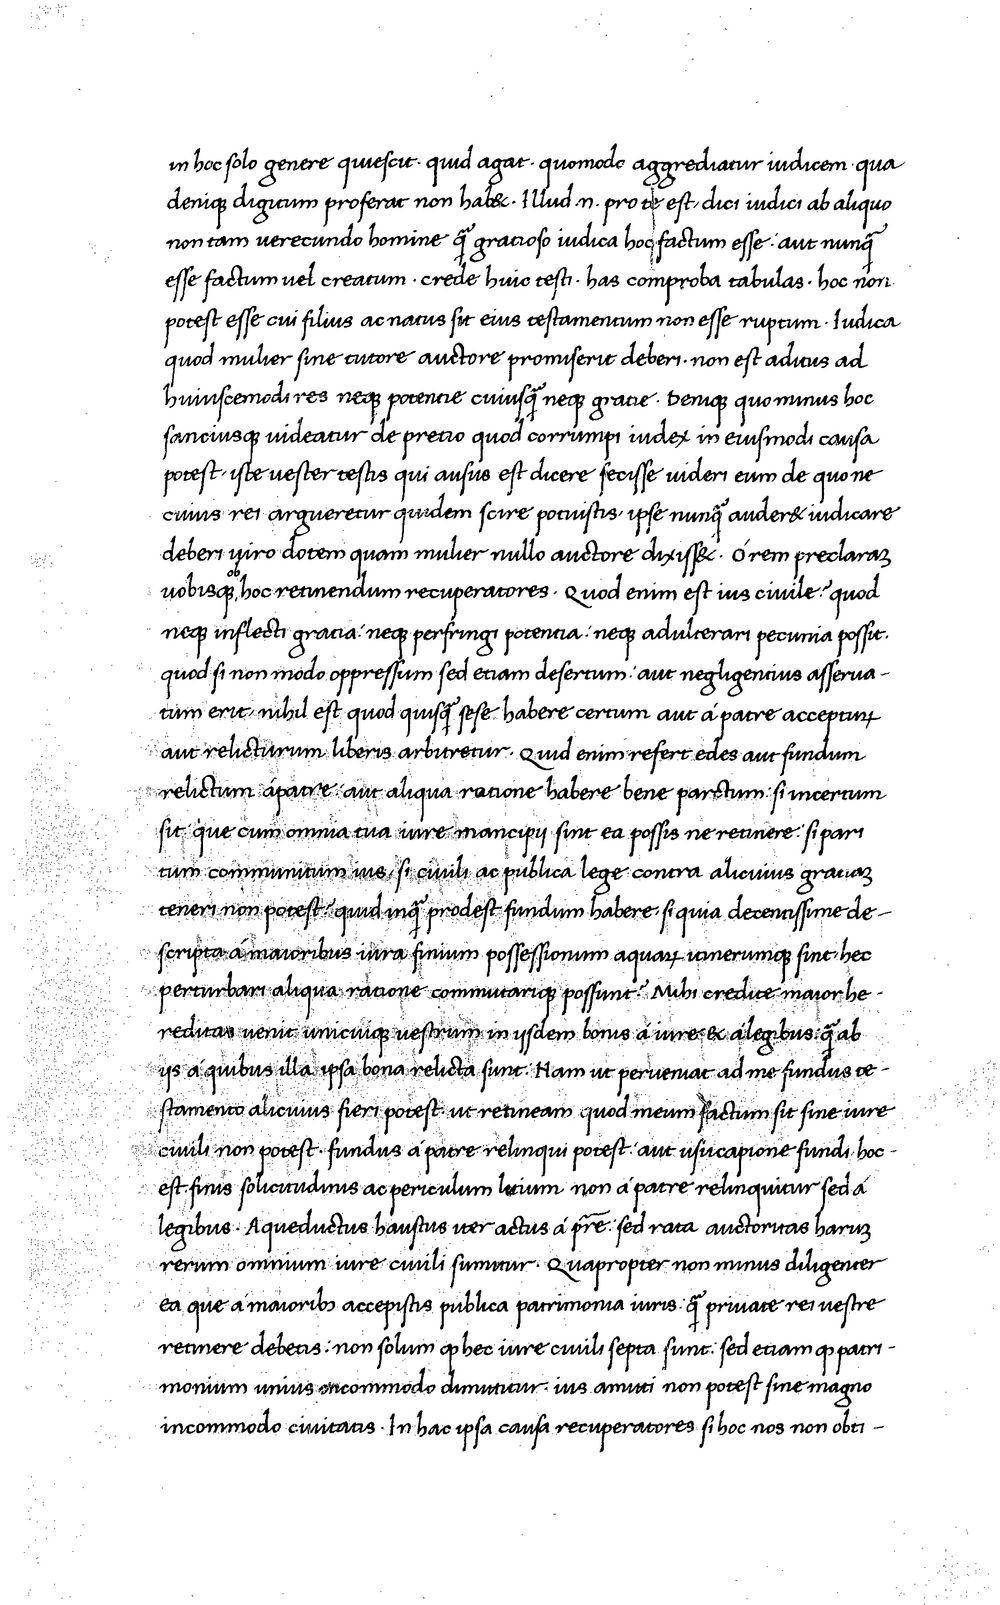 in hoc solo genere quiescit · quid agat · quomodo aggrediatur iudicem · qua
deniq; digitum proferat non hab&. Illud .n. pro te est, dici iudici ab aliquo
non tam verecundo homine q̃ gratioso iudica hoc factum esse : aut nunq̃
esse factum vel creatum · crede huic testi · has comproba tabulas · hoc non
potest esse cui filius ac natus sit eius testamentum non esse ruptum · Iudica
quod mulier sine tutore auctore promiserit deberi · non est aditus ad
huiuscemodi res neq; potentie cuiusq̃ neq; gratie · Deniq; quo minus hoc
sanctiusq; uideatur de pretio quod corrumpi iudex in eiusmodi causa
potest, iste uester testis qui ausus est dicere fecisse uideri eum de quo ne
cuius rei argueretur quidem scire potuistis, ipse nunq̃ auder& iudicare
deberi uiro dotem quam mulier nullo auctore dixiss&. O rem preclaraꝫ
uobisq; ob hoc retinendum recuperatores · Quod enim est ius ciuile? quod
neq; inflecti gratia : neq; perfringi potentia : neq; adulterari pecunia possit.
quod si non modo oppressum sed etiam desertum : aut negligentius asserua-
tum erit, nihil est quod quisq̃ sese habere certum aut á patre accepturꝝ
aut relicturum liberis arbitretur · Quid enim refert edes aut fundum
relictum á patre : aut aliqua ratione habere bene partum : si incertum
sit : que cum omnia tua iure mancipij sint ea possis ne retinere : si pari
tum communitum ius, si ciuili ac publica lege contra alicuius gratiaꝫ
teneri non potest? quid inq̃ prodest fundum habere, si quia decentissime de-
scripta á maioribus iura finium possessionum aquaꝝ itinerumq; sint, hec
perturbari aliqua ratione commutariq; possunt? Mihi credite maior he-
reditas uenit unicuiq; uestrum in ijsdem bonis á iure & á legibus : q̃ ab
ijs á quibus illa ipsa bona relicta sunt. Nam ut perueniat ad me fundus te-
stamento alicuius fieri potest : ut retineam quod meum factum sit sine iure
ciuili non potest · fundus á patre relinqui potest : aut usucapione fundi, hoc-
est finis solicitudinis ac periculum litium non á patre relinquitur sed á
legibus · Aqueductus haustus iter actus á pr̃e : sed rata auctoritas haruꝫ
rerum omnium iure ciuili sumitur · Quapropter non minus diligenter
ea que á maioribꝫ accepistis publica patrimonia iuris : q̃ priuate rei uestre
retinere debetis : non solum ꝙ hec iure ciuili septa sunt : sed etiam ꝙ patri-
monium unius incommodo dimittitur · ius amitti non potest sine magno
incommodo ciuitatis · In hac ipsa causa recuperatores si hoc nos non obti-